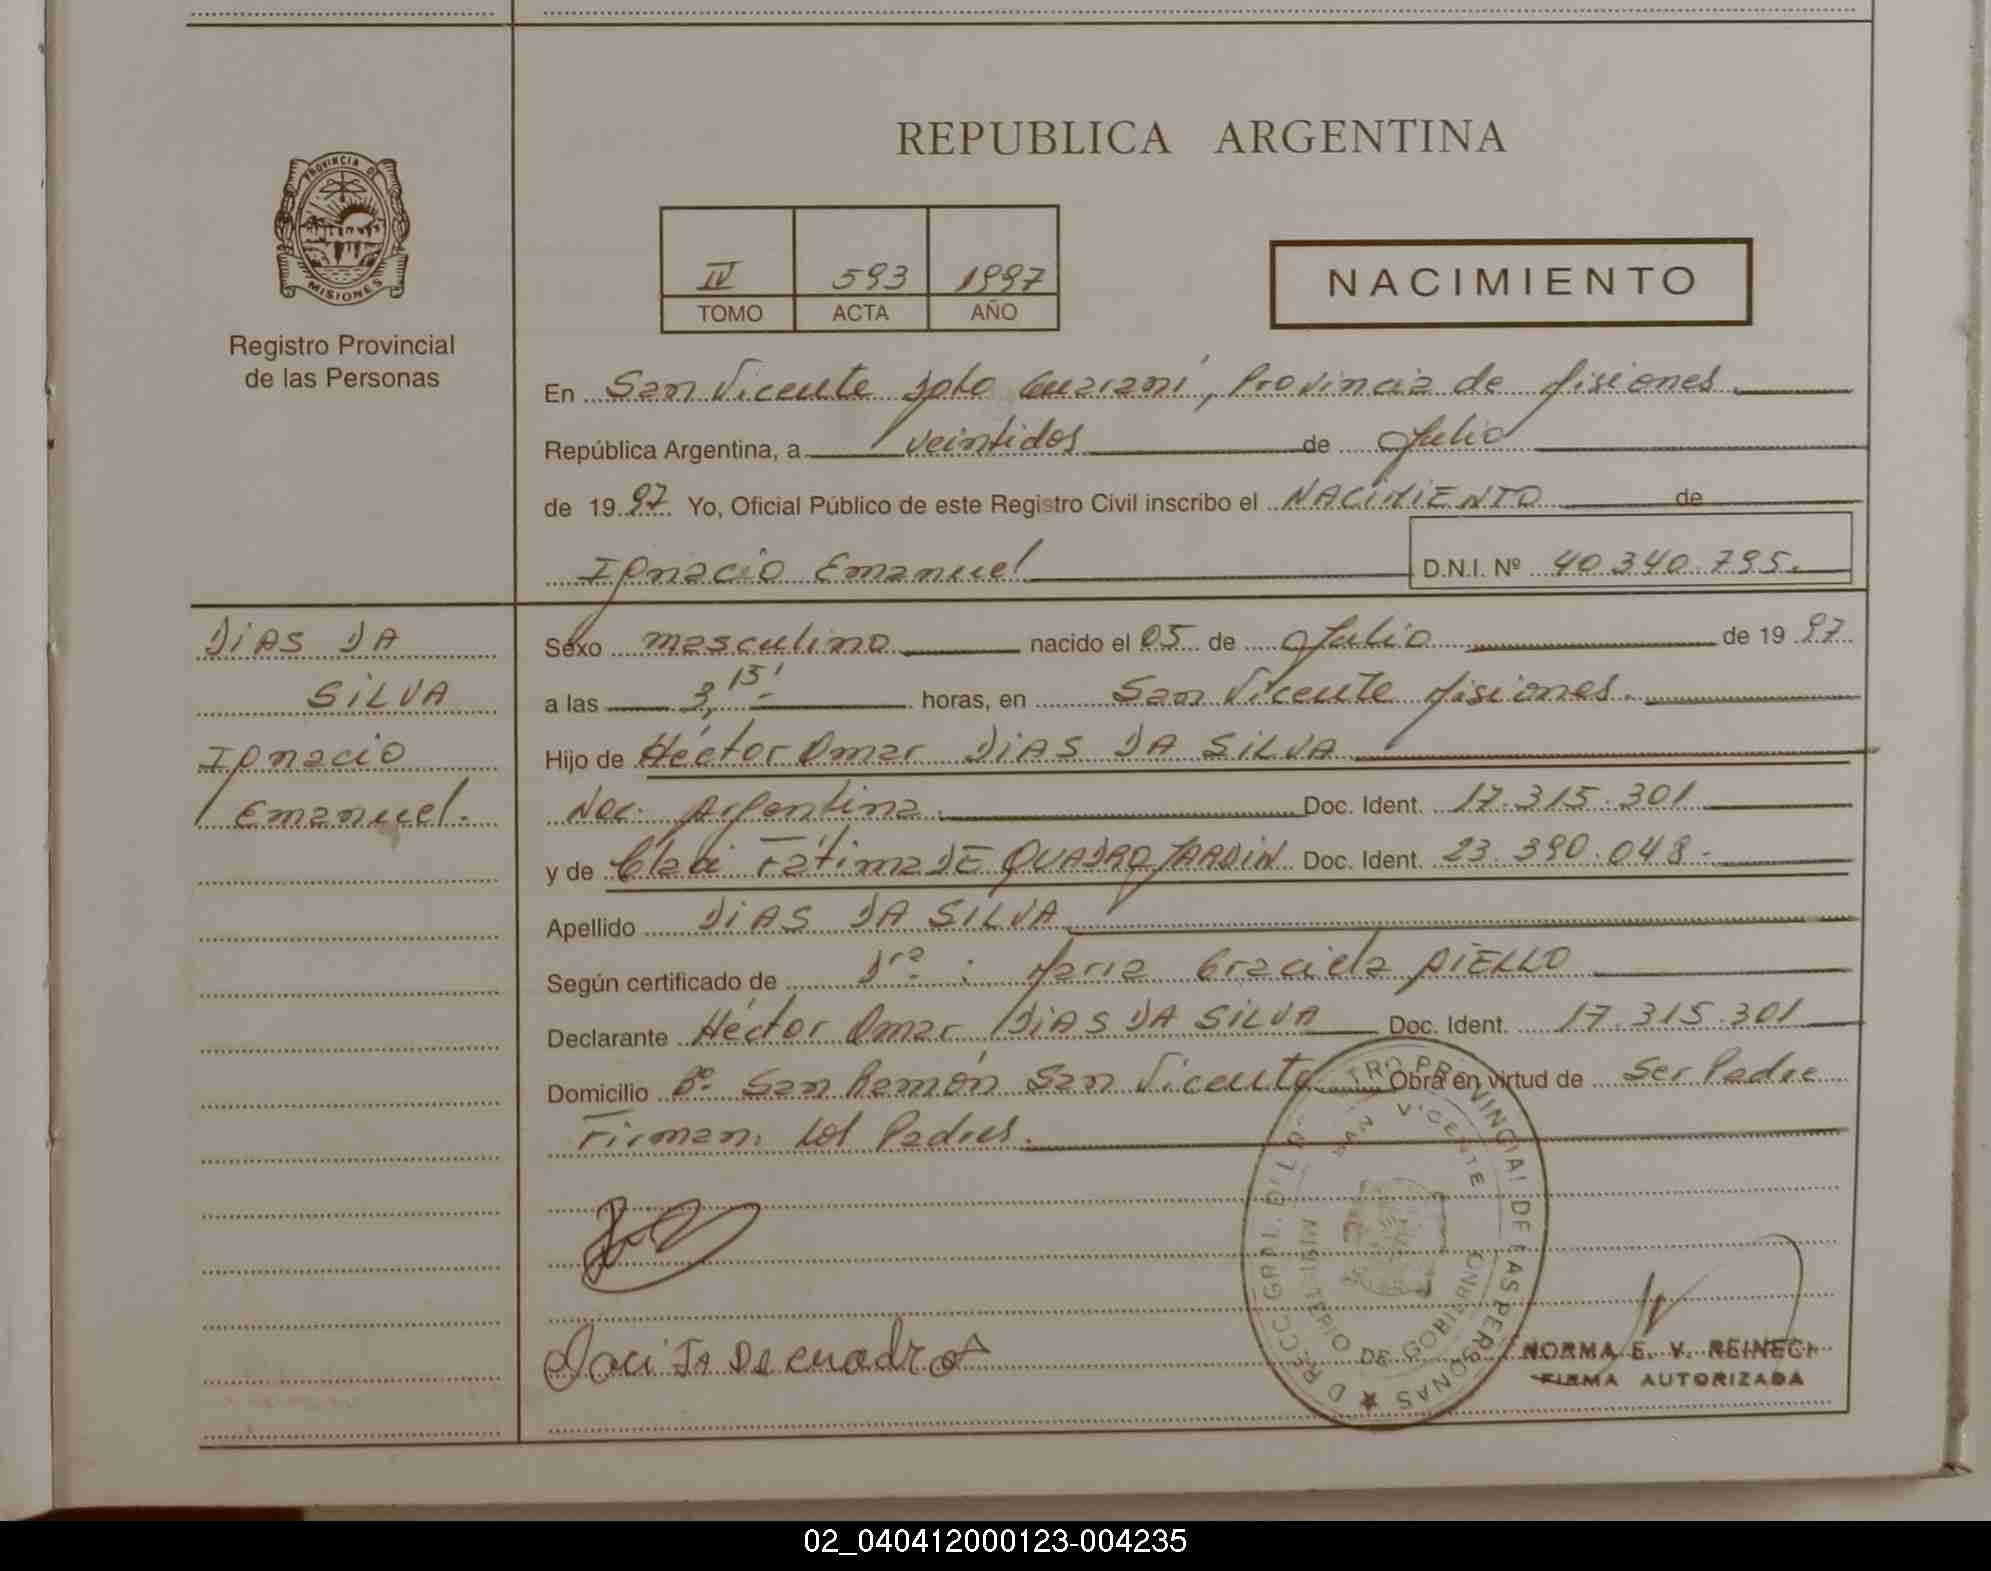 REPUBLICA ARGENTINA
PROVINCIA DE
MISIONES
Registro Provincial
de las Personas
IV 593 1997
TOMO ACTA AÑO
NACIMIENTO
En San Vicente Dpto Guaraní, Provincia de Misiones
República Argentina, a veintidos de Julio
de 1997 Yo, Oficial Público de este Registro Civil inscribo el NACIMIENTO de
Ignacio Emanuel D.N.I. Nº 40.340.795.
DIAS DA
SILVA
Ignacio
Emanuel.
Sexo masculino nacido el 05 de Julio de 1997
a las 3,15' horas, en San Vicente Misiones.
Hijo de Héctor Omar DIAS DA SILVA
Nac. Argentina. Doc. Ident. 17.315.301
y de Fátima DE QUADRO JARDIN Doc. Ident. 23.390.048.
Apellido DIAS DA SILVA
Según certificado de Dra.: Maria Graciela AIELLO
Declarante Héctor Omar DIAS DA SILVA Doc. Ident. 17.315.301
Domicilio Bº San Ramón San Vicente Obra en virtud de Ser Padre
Firman: Los Padres.
SAN VICENTE
MINISTERIO DE GOBIERNO
NORMA E. V. REINECK
FIRMA AUTORIZADA
02_040412000123-004235